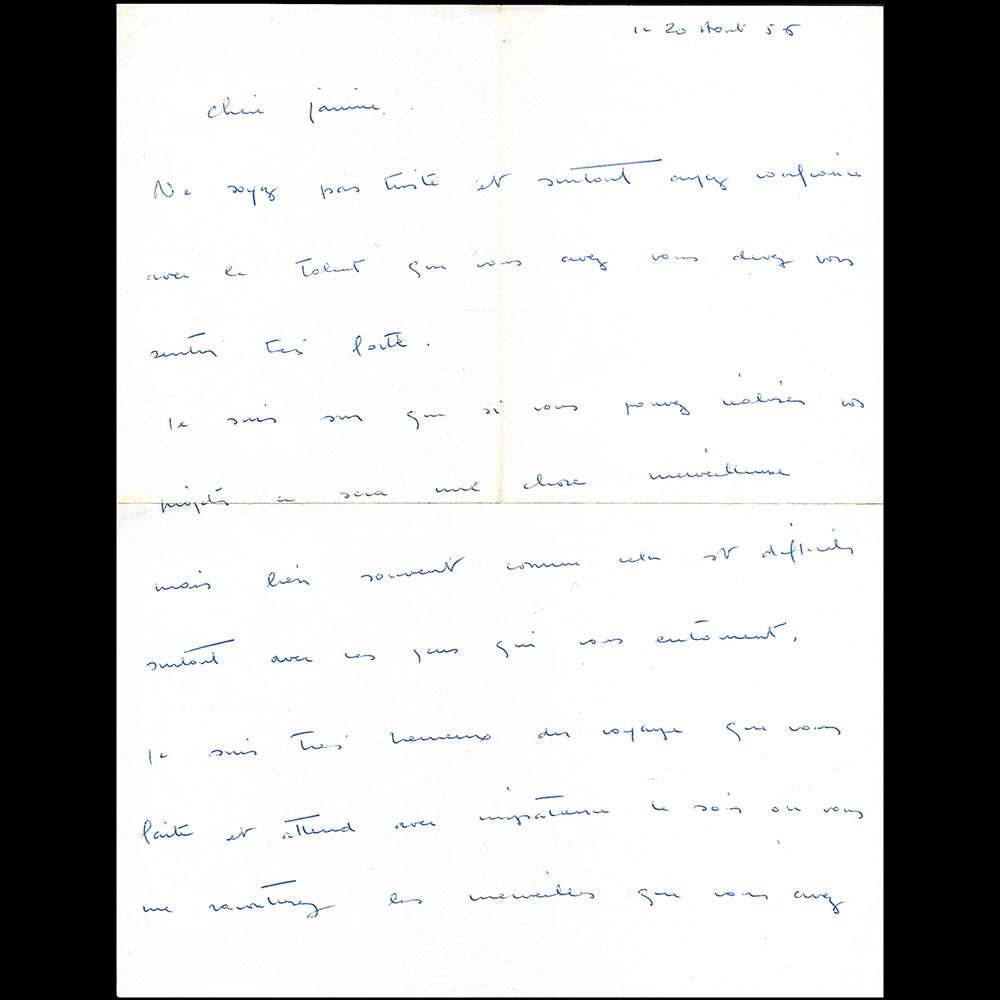 le 20 Aout 56
chère janine.
Ne soyez pas triste et surtout ayez confiance
avec le talent que vous avez vous devez vous
sentir très forte.
Je suis sur que si vous pouvez réaliser vos
projets ce sera une chose merveilleuse
mais bien souvent comme cela est difficile
surtout avec les gens qui vous entourent.
Je suis très heureux du voyage que vous
faite et attend avec impatience le soir ou vous
me raconterez les merveilles que vous avez